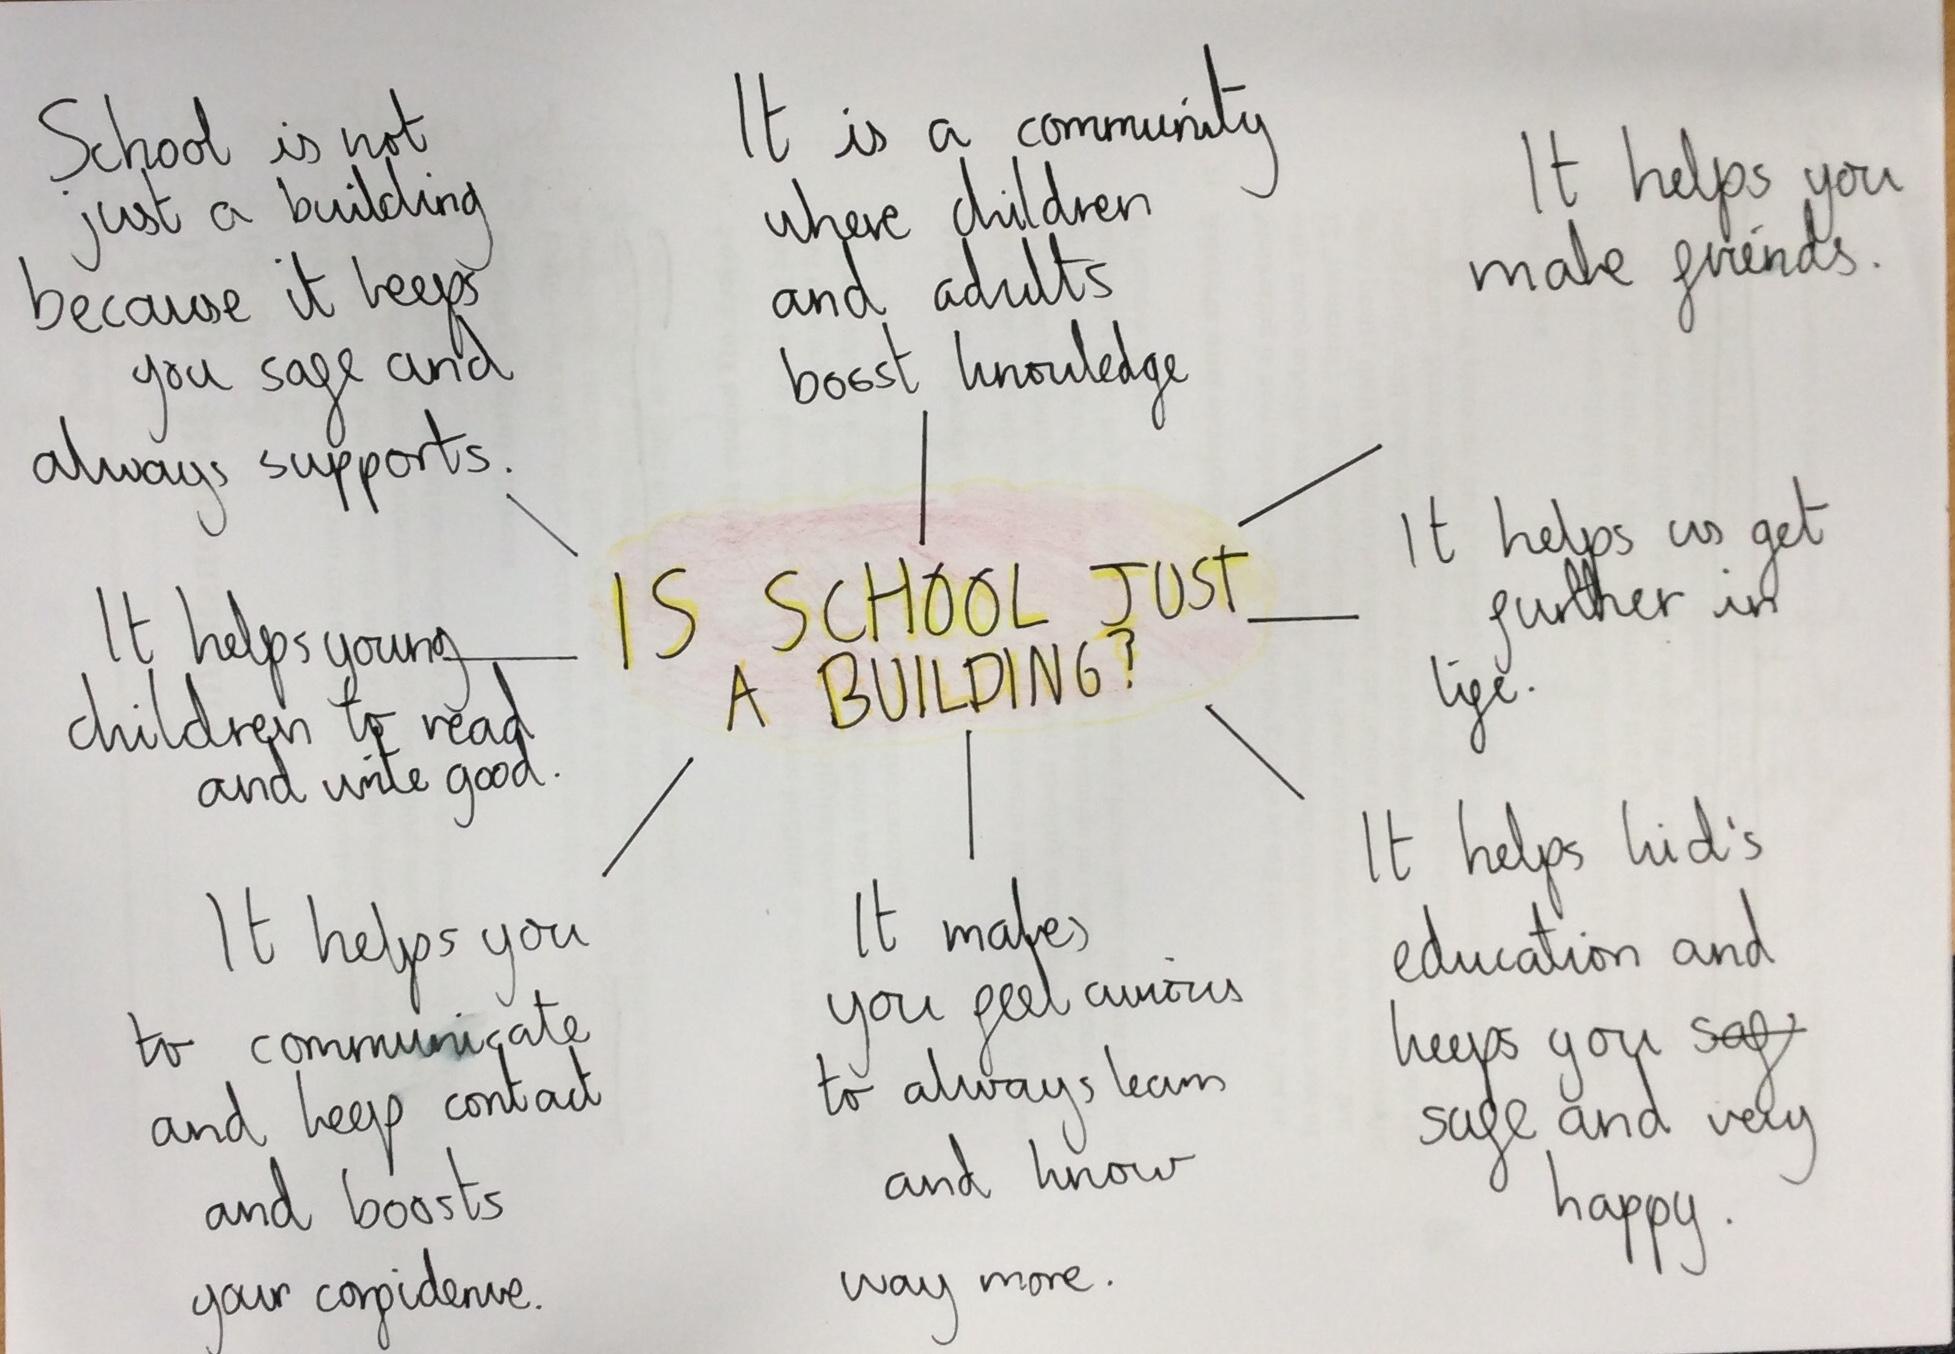 School is not
just a building
because it keeps
you safe and
always supports.
It is a community
where children
and adults
boost knowledge
It helps you
make friends.
IS SCHOOL JUST
A BUILDING?
It helps us get
further in
life.
It helps young
children to read
and write good.
It helps you
to communicate
and keep contact
and boosts
your confidence.
It makes
you feel curious
to always learn
and know
way more.
It helps kid's
education and
keeps you saf
safe and very
happy.